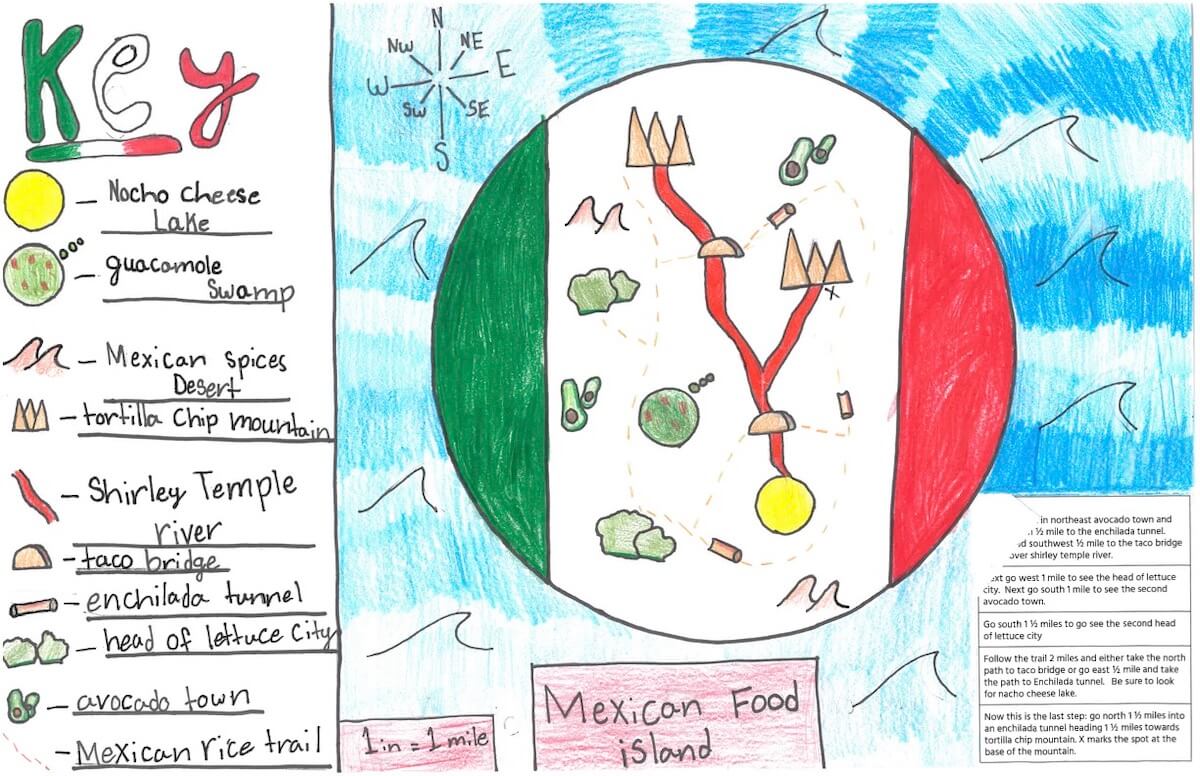 Key
Nocho cheese
Lake
guacamole
swamp
Mexican spices
Desert
tortilla chip mountain
Shirley Temple
river
taco bridge
enchilada tunnel
head of lettuce city
avocado town
Mexican rice trail
N
NW NE
W E
SW SE
S
X
1 in = 1 mile
Mexican Food
island
in northeast avocado town and
½ mile to the enchilada tunnel.
southwest ½ mile to the taco bridge
over shirley temple river.
go west 1 mile to see the head of lettuce
city. Next go south 1 mile to see the second
avocado town.
Go south 1 ½ miles to go see the second head
of lettuce city
Follow the trail 2 miles and either take the north
path to taco bridge or go east ½ mile and take
the path to Enchilada tunnel. Be sure to look
for nacho cheese lake.
Now this is the last step: go north 1 ½ miles into
an enchilada tunnel heading 1 ½ miles towards
tortilla chip mountain. X marks the spot at the
base of the mountain.